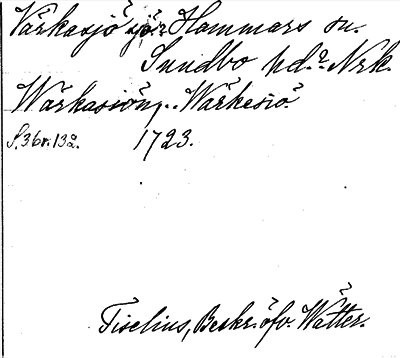 Vårkasjö sjö: Hammars sn.
Sundbo hd. Nrk.
Wårkasiön, .. Wårkesiö
S. 36 r. 132. 1723.
Tiselius, Beskr. öfv. Wätter.